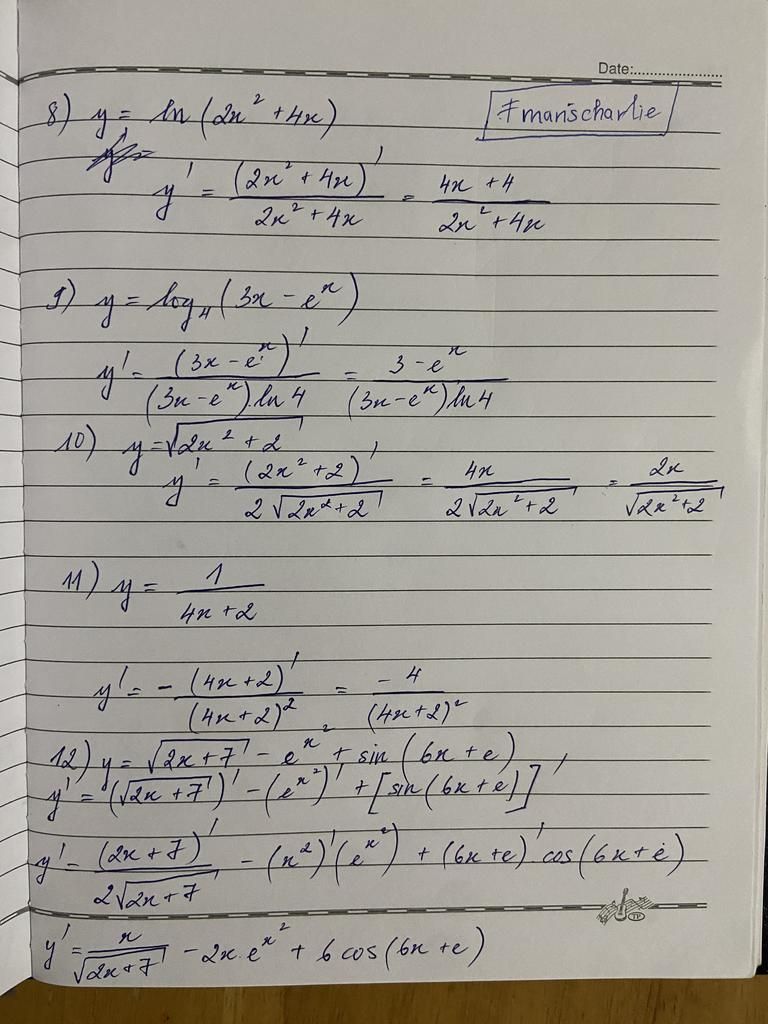 Date:........................
8) y = ln (2x² + 4x)
#marischarlie
y' = (2x² + 4x)' / (2x² + 4x) = (4x + 4) / (2x² + 4x)
9) y = log₄ (3x − eˣ)
y' = (3x − eˣ)' / ((3x − eˣ).ln 4) = (3 − eˣ) / ((3x − eˣ) ln 4)
10) y = √(2x² + 2)
y' = (2x² + 2)' / (2√(2x² + 2)) = 4x / (2√(2x² + 2)) = 2x / √(2x² + 2)
11) y = 1 / (4x + 2)
y' = − (4x + 2)' / (4x + 2)² = − 4 / (4x + 2)²
12) y = √(2x + 7) − e^(x²) + sin (6x + e)
y' = (√(2x + 7))' − (e^(x²))' + [sin (6x + e)]'
y' = (2x + 7)' / (2√(2x + 7)) − (x²)' (e^(x²)) + (6x + e)' cos (6x + e)
TP
y' = x / √(2x + 7) − 2x.e^(x²) + 6 cos (6x + e)